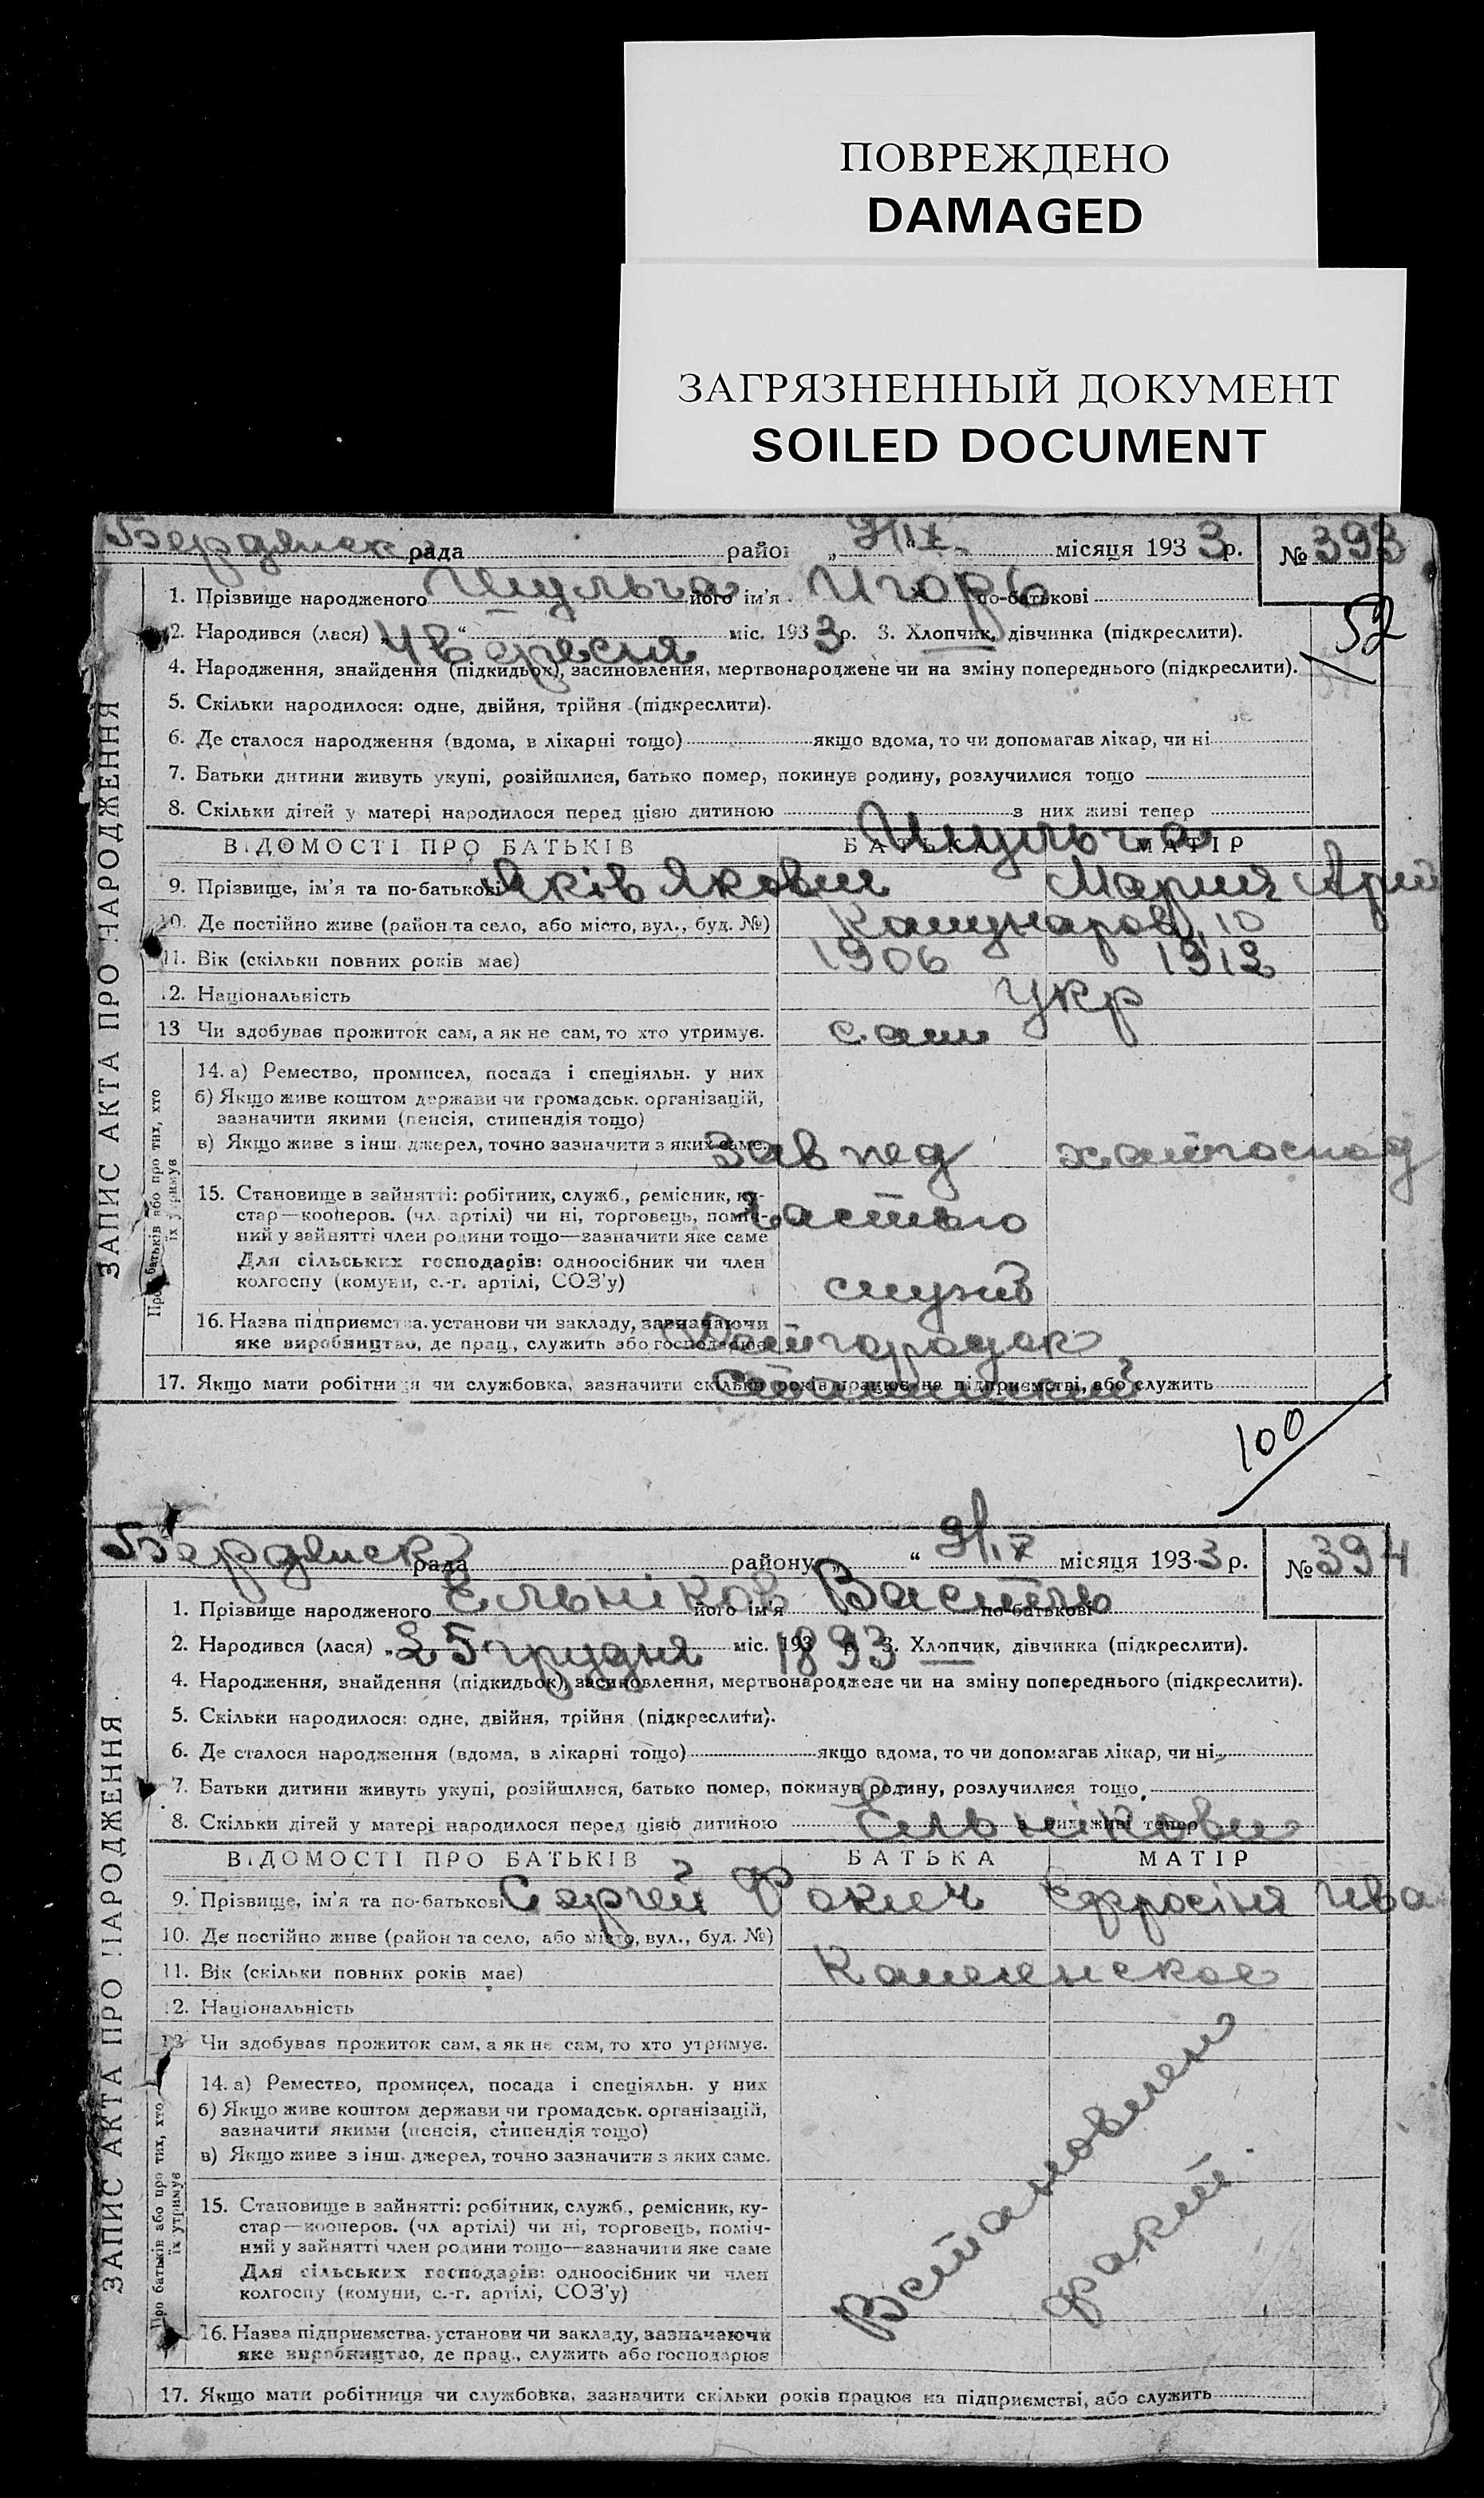 ПОВРЕЖДЕНО
DAMAGED
ЗАГРЯЗНЕННЫЙ ДОКУМЕНТ
SOILED DOCUMENT
Бердянск рада район „ 9/IX місяця 1933 р. № 393
1. Прізвище народженого Шульга його ім'я Игорь по-батькові
52
2. Народився (лася) „4 вересня“ міс. 1933 р. 3. Хлопчик, дівчинка (підкреслити).
4. Народження, знайдення (підкидьок), засиновлення, мертвонароджене чи на зміну попереднього (підкреслити).
5. Скільки народилося: одне, двійня, трійня (підкреслити).
6. Де сталося народження (вдома, в лікарні тощо) якщо вдома, то чи допомагав лікар, чи ні
7. Батьки дитини живуть укупі, розійшлися, батько помер, покинув родину, розлучилися тощо
8. Скільки дітей у матері народилося перед цією дитиною з них живі тепер
Шульга
ВІДОМОСТІ ПРО БАТЬКІВ БАТЬКА МАТІР
9. Прізвище, ім'я та по-батькові Яків Якович Мария
10. Де постійно живе (район та село, або місто, вул., буд. №) 10
11. Вік (скільки повних років має) 1906 1912
12. Національність Укр
13 Чи здобуває прожиток сам, а як не сам, то хто утримує. сам
14. а) Ремество, промисел, посада і спеціяльн. у них
б) Якщо живе коштом держави чи громадськ. організацій,
зазначити якими (пенсія, стипендія тощо)
в) Якщо живе з інш. джерел, точно зазначити з яких саме. Зав пед хатгоспод
15. Становище в зайнятті: робітник, служб., ремісник, ку-
стар—кооперов. (чл. артілі) чи ні, торговець, поміч- частью
ний у зайнятті член родини тощо—зазначити яке саме
Для сільських господарів: одноосібник чи член
колгоспу (комуни, с.-г. артілі, СОЗ'у) служб
16. Назва підприємства, установи чи закладу, зазначаючи
яке виробництво, де прац., служить або господарює
17. Якщо мати робітниця чи службовка, зазначити скільки років працює на підприємстві, або служить
ЗАПИС АКТА ПРО НАРОДЖЕННЯ
Про батьків або про тих, хто
їх утримує
100
Бердянск рада району „ “ 9/IX місяця 1933 р. № 394
1. Прізвище народженого Єльніков його ім'я Василь по-батькові
2. Народився (лася) „25 грудня міс. 193 1893 р. 3. Хлопчик, дівчинка (підкреслити).
4. Народження, знайдення (підкидьок), засиновлення, мертвонароджене чи на зміну попереднього (підкреслити).
5. Скільки народилося: одне, двійня, трійня (підкреслити).
6. Де сталося народження (вдома, в лікарні тощо) якщо вдома, то чи допомагав лікар, чи ні
7. Батьки дитини живуть укупі, розійшлися, батько помер, покинув родину, розлучилися тощо
8. Скільки дітей у матері народилося перед цією дитиною з них живі тепер
Єльнікови
ВІДОМОСТІ ПРО БАТЬКІВ БАТЬКА МАТІР
9. Прізвище, ім'я та по-батькові Сергей Фокич Ефросіня Ива
10. Де постійно живе (район та село, або місто, вул., буд. №)
11. Вік (скільки повних років має) Каменское
12. Національність
13 Чи здобуває прожиток сам, а як не сам, то хто утримує.
14. а) Ремество, промисел, посада і спеціяльн. у них
б) Якщо живе коштом держави чи громадськ. організацій,
зазначити якими (пенсія, стипендія тощо)
в) Якщо живе з інш. джерел, точно зазначити з яких саме.
15. Становище в зайнятті: робітник, служб., ремісник, ку-
стар—кооперов. (чл. артілі) чи ні, торговець, поміч-
ний у зайнятті член родини тощо—зазначити яке саме
Для сільських господарів: одноосібник чи член
колгоспу (комуни, с.-г. артілі, СОЗ'у)
16. Назва підприємства, установи чи закладу, зазначаючи
яке виробництво, де прац., служить або господарює
Встановлен
факт
17. Якщо мати робітниця чи службовка, зазначити скільки років працює на підприємстві, або служить
ЗАПИС АКТА ПРО НАРОДЖЕННЯ
Про батьків або про тих, хто
їх утримує